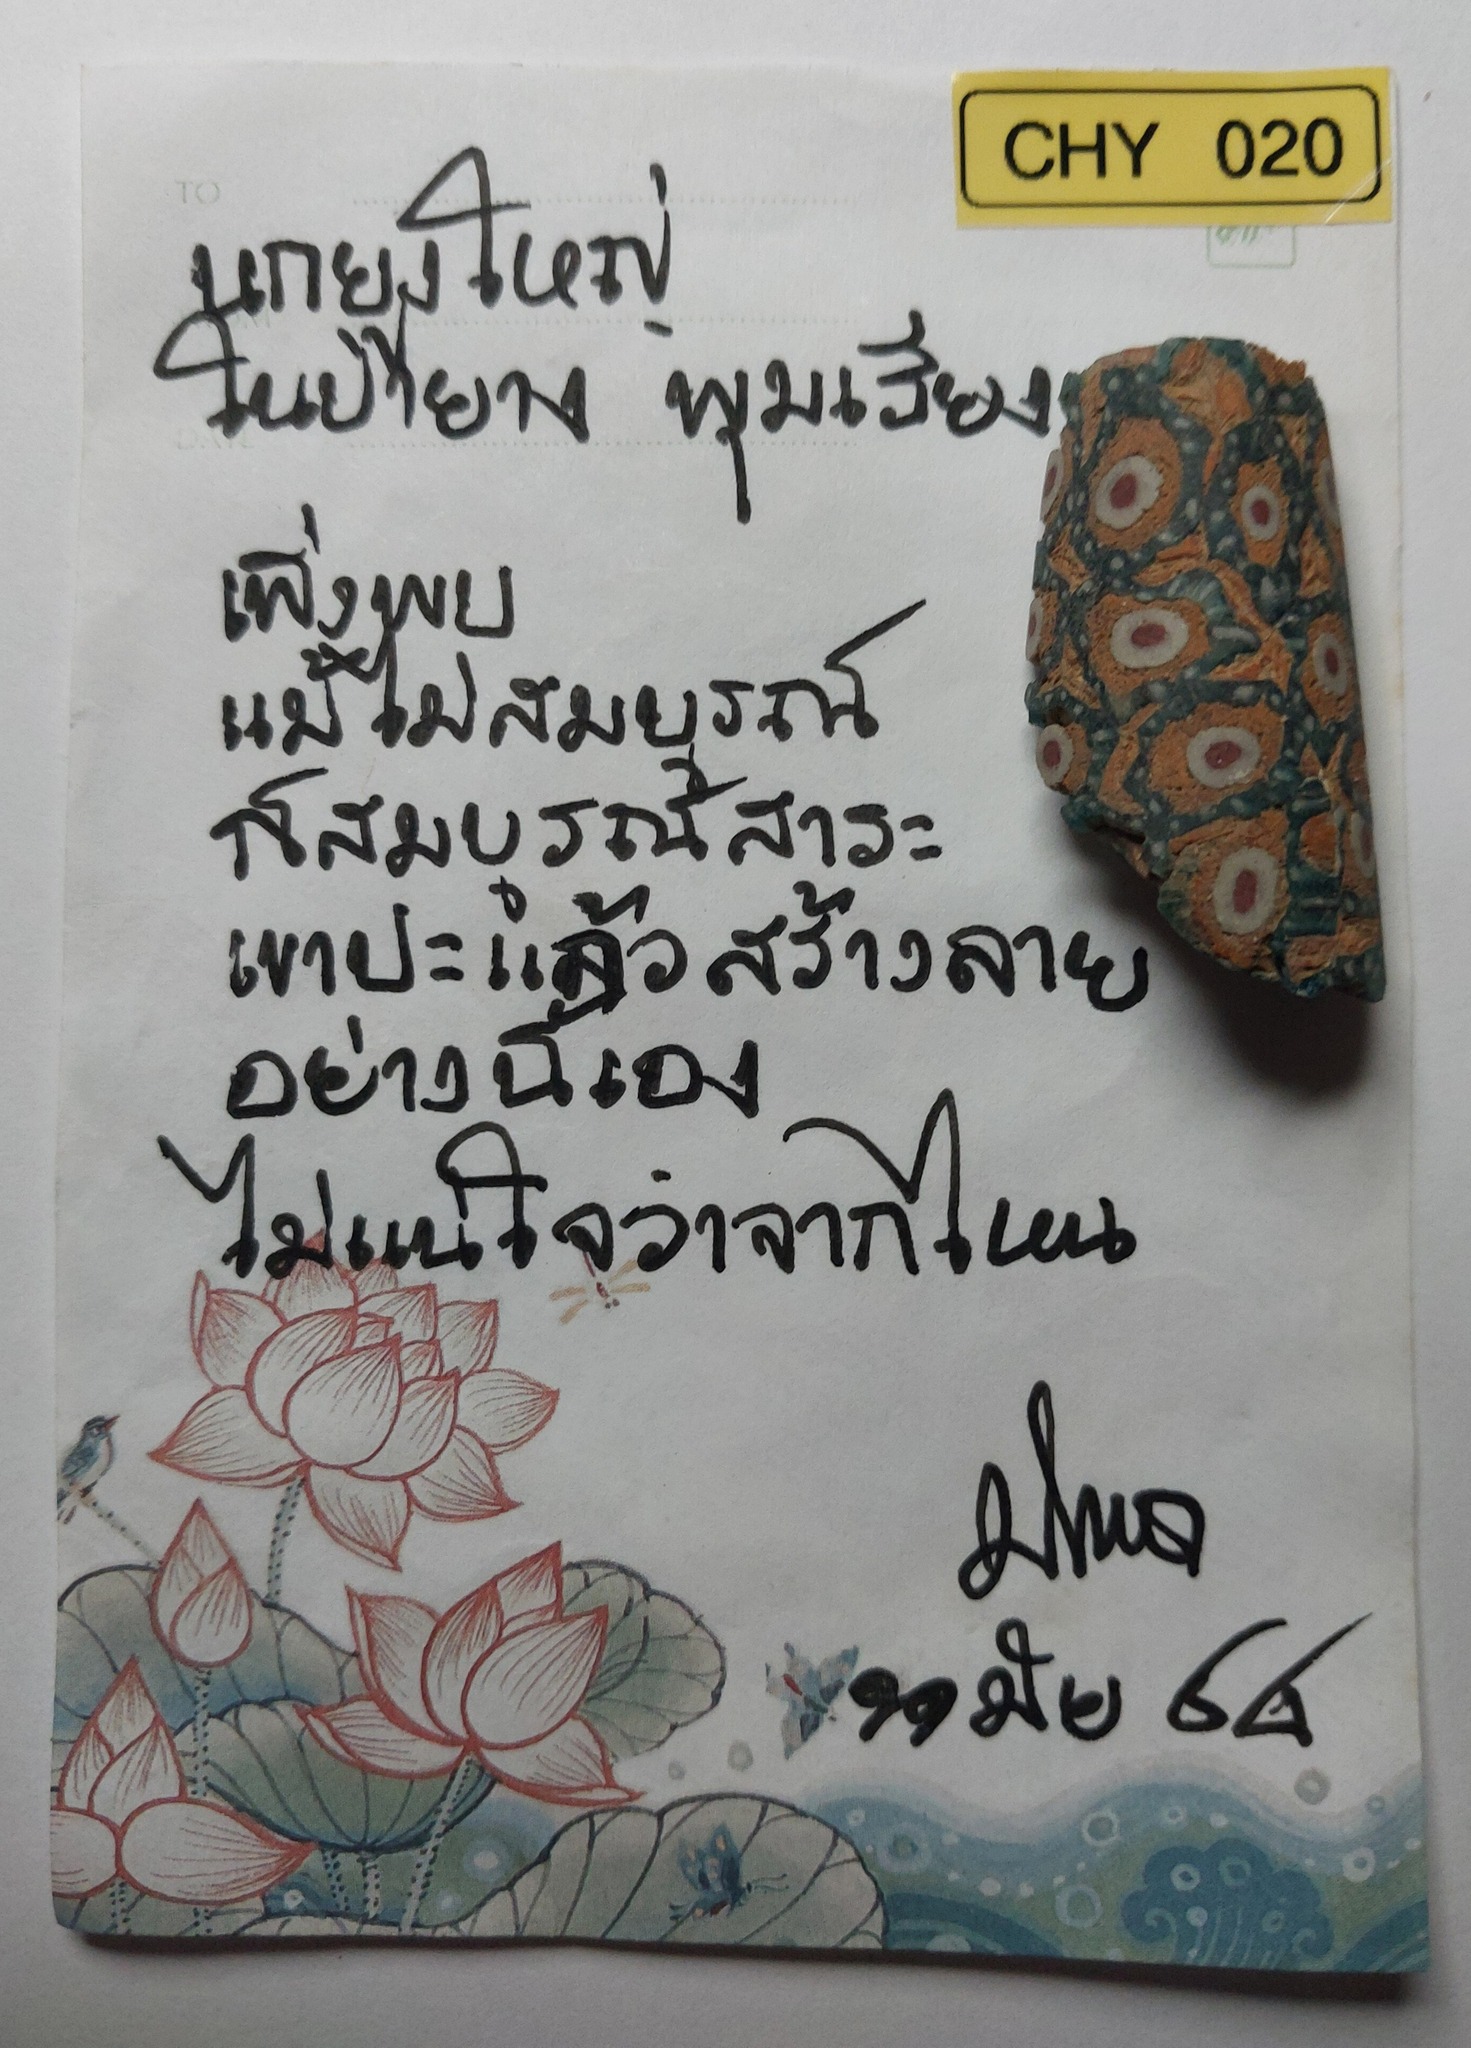 CHY 020
TO
นกยูงใหญ่
ในป่ายาง พุมเรียง
DATE
เพิ่งพบ
แม้ไม่สมบูรณ์
ก็สมบูรณ์สาระ
เขาปะแล้วสร้างลาย
อย่างนี้เอง
ไม่แน่ใจว่าจากไหน
๑๑ มิย ๖๔